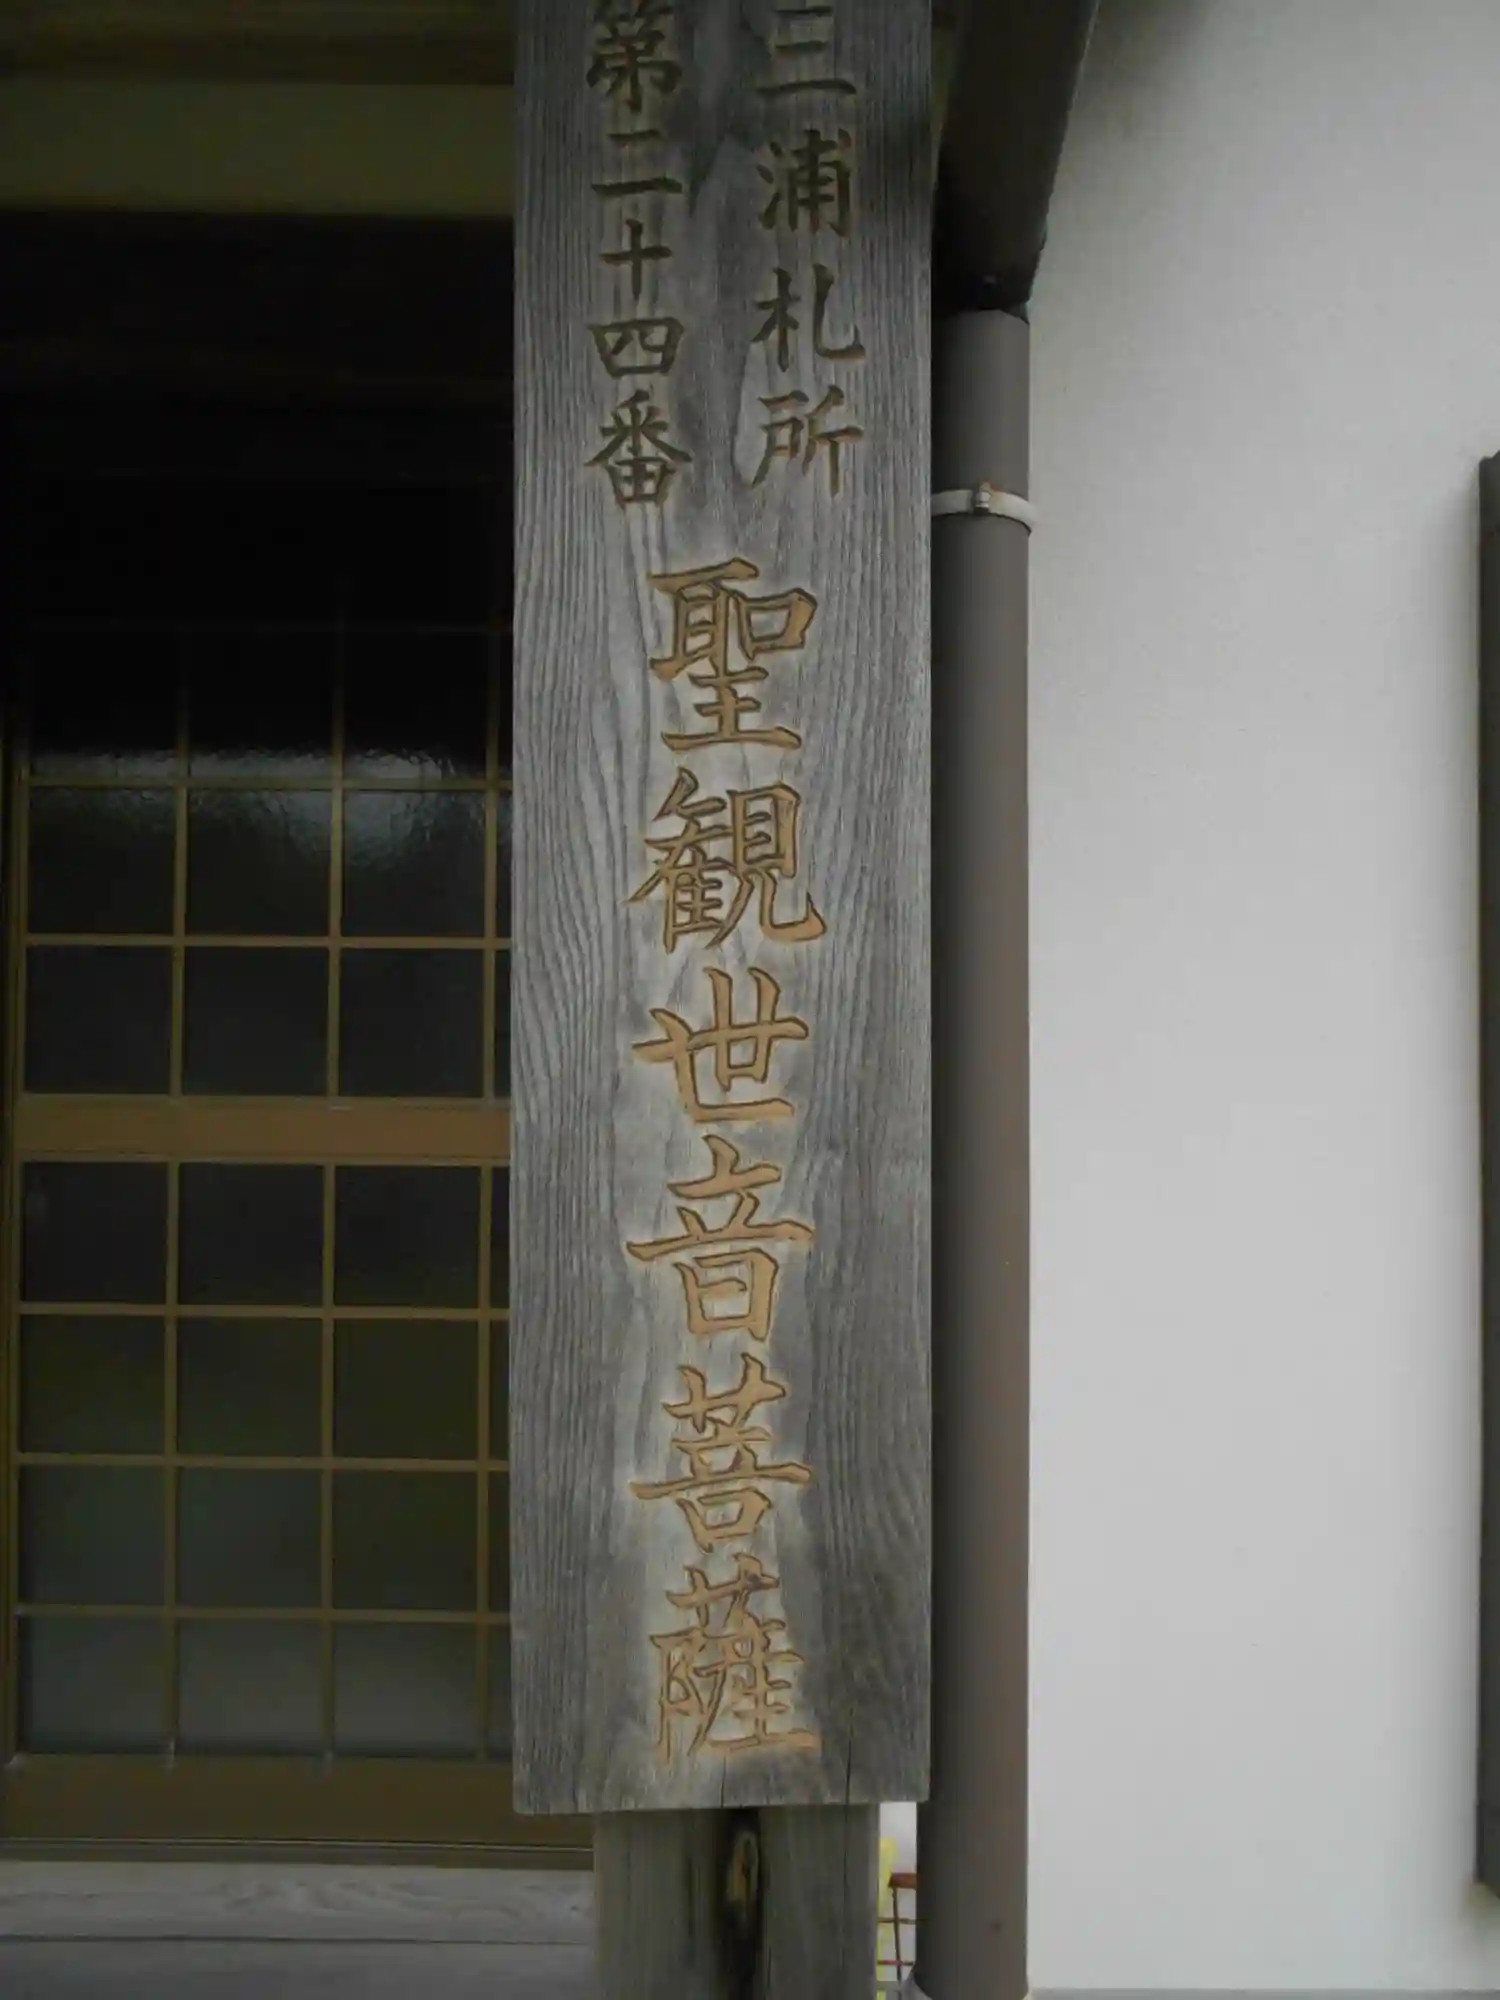 三浦札所
第二十四番
聖観世音菩薩